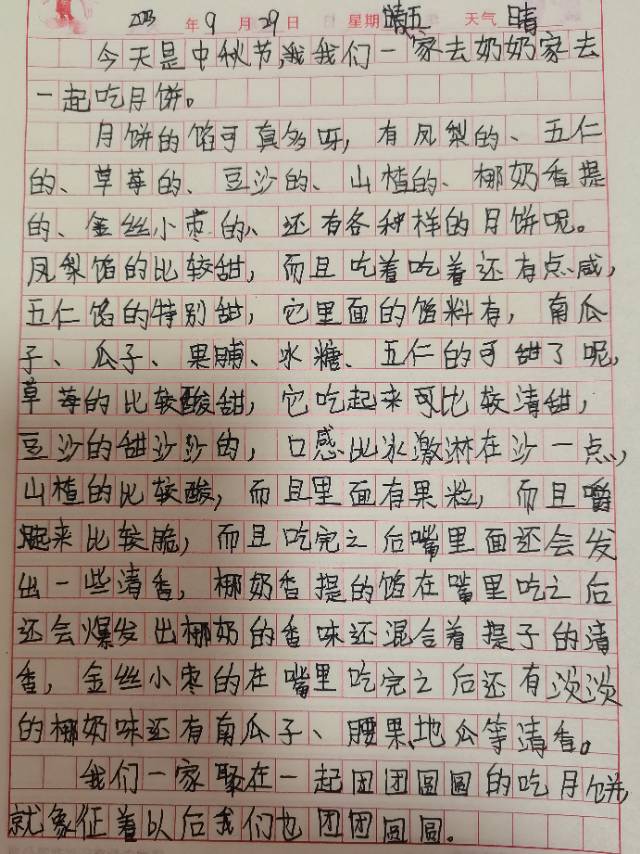 2023年9月29日 星期五 天气晴
今天是中秋节,我我们一家去奶奶家去
一起吃月饼。
月饼的馅可真多呀,有凤梨的、五仁
的、草莓的、豆沙的、山楂的、椰奶香提
的、金丝小枣的、还有各种样的月饼呢。
凤梨馅的比较甜,而且吃着吃着还有点咸,
五仁馅的特别甜,它里面的馅料有,南瓜
子、瓜子、果脯、冰糖、五仁的可甜了呢,
草莓的比较酸甜,它吃起来可比较清甜,
豆沙的甜沙沙的,口感比冰激淋在沙一点,
山楂的比较酸,而且里面有果粒,而且嚼
起来比较脆,而且吃完之后嘴里面还会发
出一些清香,椰奶香提的馅在嘴里吃之后
还会爆发出椰奶的香味还混合着提子的清
香,金丝小枣的在嘴里吃完之后还有淡淡
的椰奶味还有南瓜子、腰果、地瓜等清香。
我们一家聚在一起团团圆圆的吃月饼,
就象征着以后我们也团团圆圆。